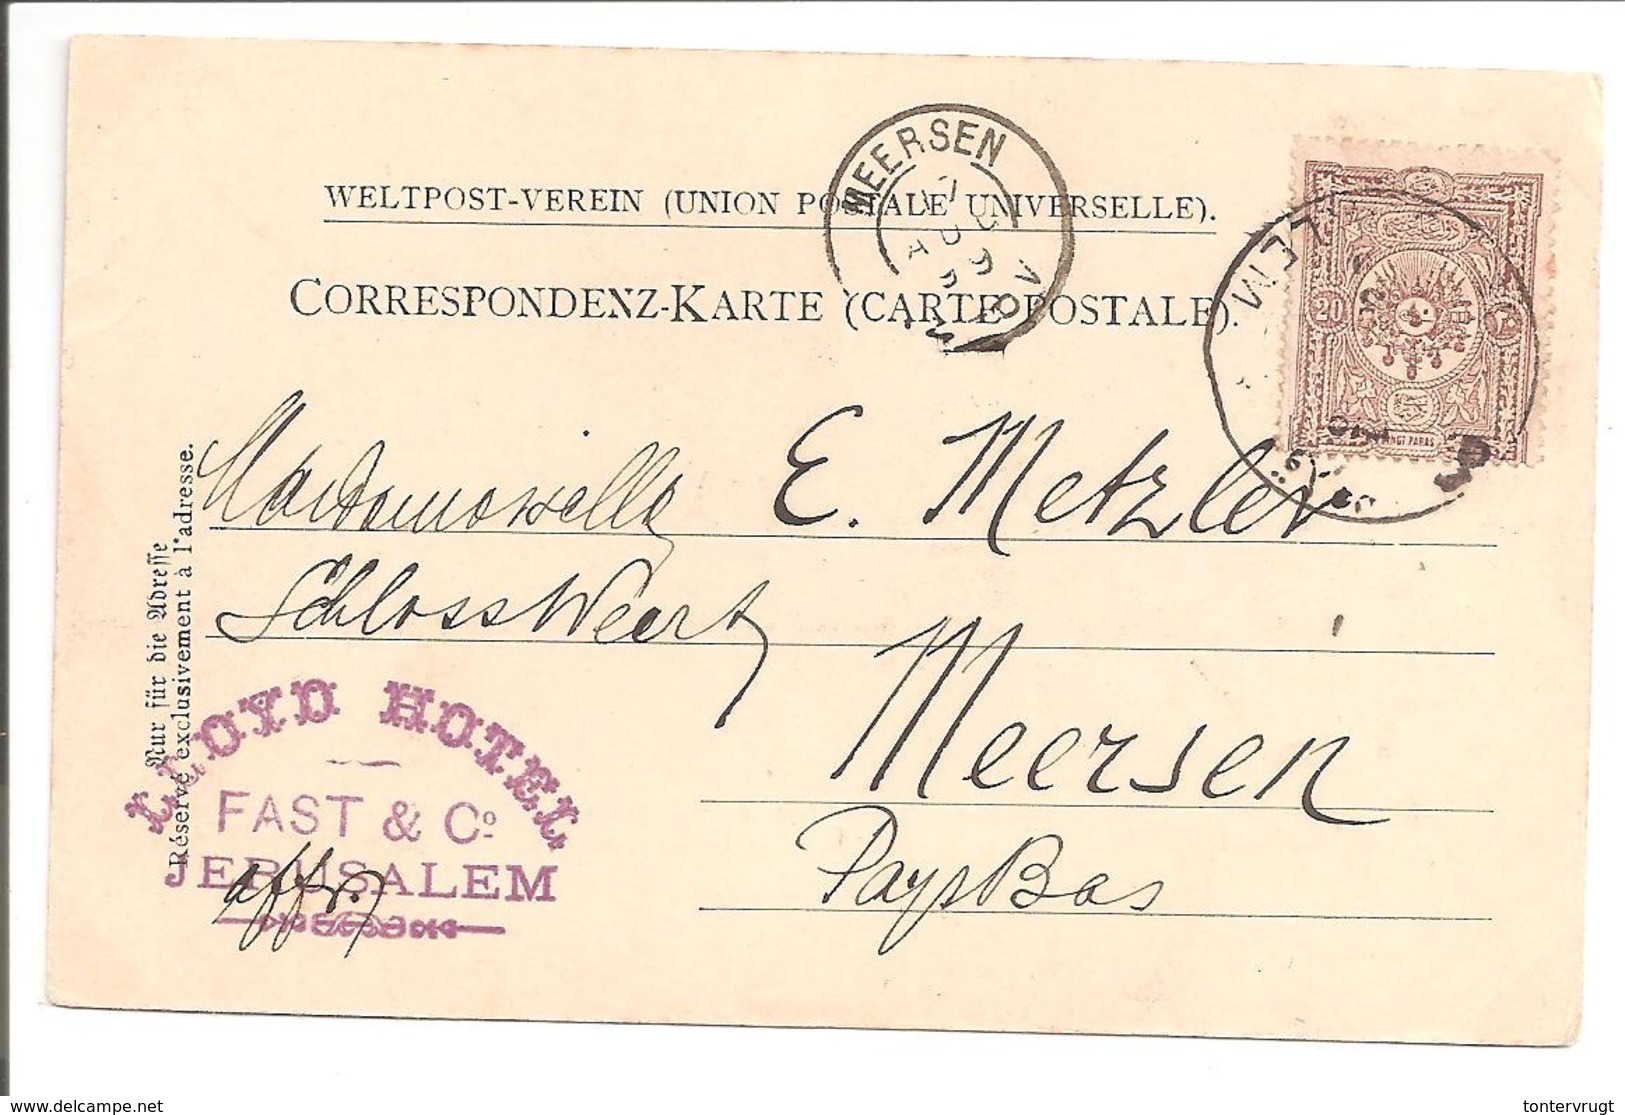 MEERSEN
WELTPOST-VEREIN (UNION POSTALE UNIVERSELLE).
CORRESPONDENZ-KARTE (CARTE POSTALE).
20
VINGT PARAS
Mademoiselle E. Metzler
Schloss Weert
Meersen
Pays Bas
Nur für die Adresse
Réservé exclusivement à l'adresse.
LLOYD HOTEL
FAST & Cº
JERUSALEM
www.delcampe.net
tontervrugt